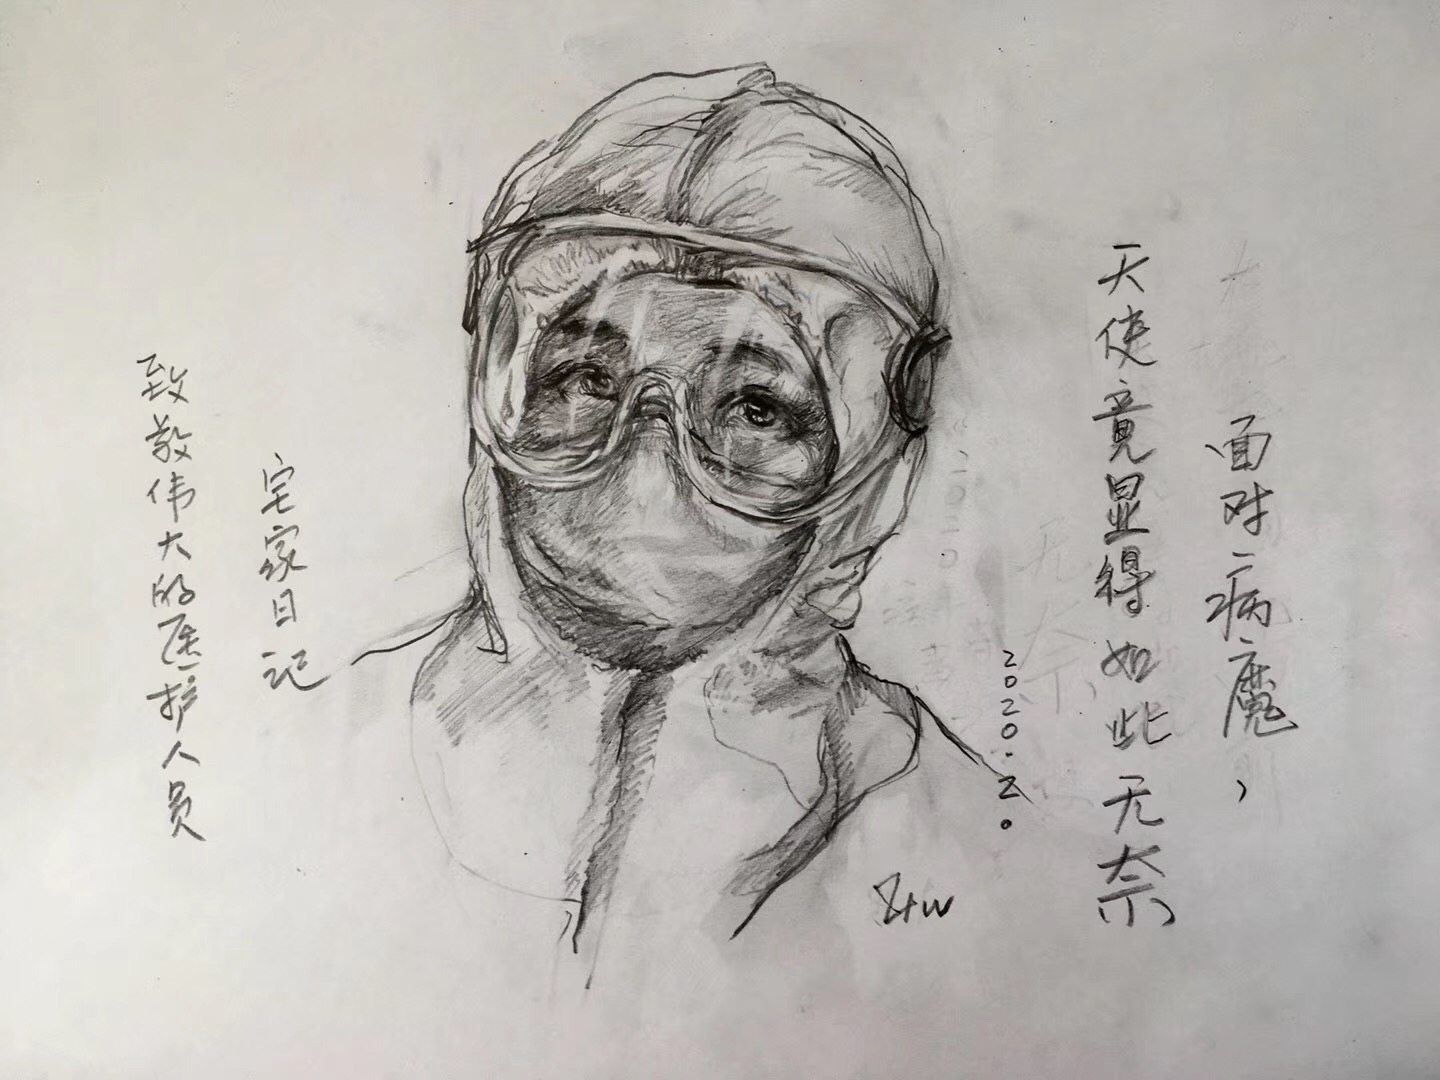 面对病魔，
天使竟显得如此无奈
2020.2.
ZHW
宅家日记
致敬伟大的医护人员